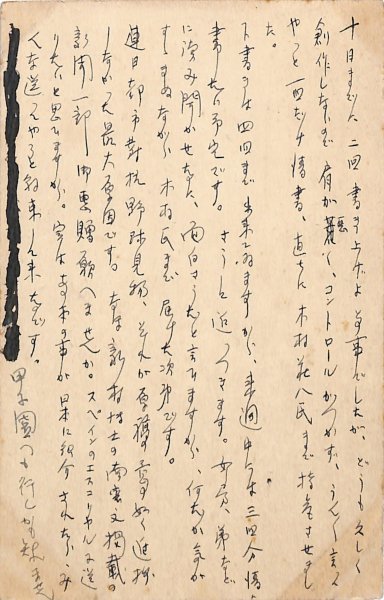 十日までに二回書き上げよとの事でしたが、どうも久しく
創作しないで肩が凝く、コントロールがつかず、うんうん言つて
やつと一回だけ清書、直ちに木村荘八氏まで持参させまし
た。
下書きは四回まで出来てゐますから、来週中には三回分清
書する予定です。さうして追つつきます。女房、弟など
に読み聞かせたら、面白さうだと言ひますが、何だか気が
すすまぬながら木村氏まで届けた次第です。
連日都市対抗野球見物、それが原稿の意の如く進捗
しなかつた最大原因です。なほ新村博士の南蛮文掲載の
新聞一部御恵贈願へませんか。スペインのエスコリヤルに送
りたいと思ひますが。実は あの事が日本に紹介されたら、み
んな送つてやると約束して来たのです。
甲子園へも行くかも知れません